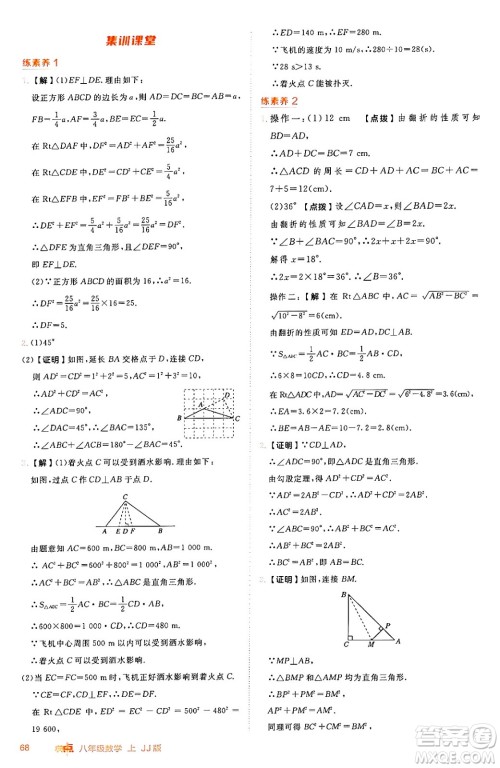 集训课堂
练素养1
1.【解】(1)EF⊥DE. 理由如下：
设正方形ABCD的边长为a，则AD=DC=BC=AB=a，
FB=1/4a，AF=3/4a，BE=EC=1/2a.
∵在Rt△DAF中，DF²=AD²+AF²=25/16a²，
在Rt△CDE中，DE²=CD²+CE²=5/4a²，
在Rt△EFB中，EF²=FB²+BE²=5/16a²，
∴DE²+EF²=5/4a²+5/16a²=25/16a²=DF².
∴△DFE为直角三角形，且∠DEF=90°，
即EF⊥DE.
(2)∵正方形ABCD的面积为16，∴a²=16.
∴DF²=25/16a²=25/16×16=25.
∴DF=5.
2.(1)45°
(2)【证明】如图，延长BA交格点于D，连接CD，
则CD²=1²+2²=5，
AD²=1²+2²=5.
∵∠ADC=90°，
∴∠PAB+∠PBA=∠DAC=45°.
3.【解】(1)着火点C可以受到洒水影响. 理由如下：
如图，过点C作CD⊥AB于点D.
由题意知AC=600 m，BC=800 m，AB=1 000 m，
∵AC²+BC²=AB²，∴△ABC是直角三角形.
∴S△ABC=1/2AC·BC=1/2CD·AB.
∴600×800=1 000CD. ∴CD=480 m.
∵飞机中心周围500 m以内可以受到洒水影响，
∴着火点C可以受到洒水影响.
(2)当EC=FC=500 m时，飞机正好喷到着火点C.
∵CE=CF，CD⊥EF，∴ED=FD.
在Rt△CDE中，ED²=CE²-CD²=500²-480²=
19 600，
∴ED=140 m. ∴EF=280 m.
∵飞机的速度为10 m/s，∴280÷10=28(s).
∵28 s>13 s，
∴着火点C能被扑灭.
练素养2
1.操作一：(1)12 cm 【点拨】由翻折的性质可知
BD=AD，
∴AD+DC=BC=7 cm.
∴△ACD的周长=AC+AD+DC=AC+BC=
7+5=12(cm).
(2)36° 【点拨】设∠CAD=x°，∠BAD=2x°.
由翻折的性质可知∠BAD=∠CBA=2x°，
∵∠B+∠BAC=90°，∴2x+2x+x=90.
解得x=18.
∴2x°=2×18°=36°. ∴∠B=36°.
操作二：【解】在Rt△ABC中，AC=√(AB²-BC²)=
√(10²-8²)=6(cm).
∵S△ABC=1/2AC·BC=1/2AB·CD，
∴6×8=10CD. ∴CD=4.8 cm.
在Rt△ADC中，AD=√(AC²-DC²)=√(6²-4.8²)=3.6(cm).
∴EA=3.6 cm.
∴BE=10-3.6=6.4(cm).
2.【证明】∵CD⊥AD，
∴∠ADC=90°.
由勾股定理，得AD²+CD²=AC².
∵AD²+CD²=2AB²，
∴AC²=2AB².
∵∠ABC=90°，
∴AB²+BC²=AC².
∴AB²+BC²=2AB².
∴BC²=AB². ∴AB=BC.
3.【证明】如图，连接BM.
∵MP⊥AB，
∴△BMP和△AMP均为直角三角形.
∴BP²+PM²=BM²，
AP²+PM²=AM².
同理可得BC²+CM²=BM².
68 点 八年级数学 上 JJ版